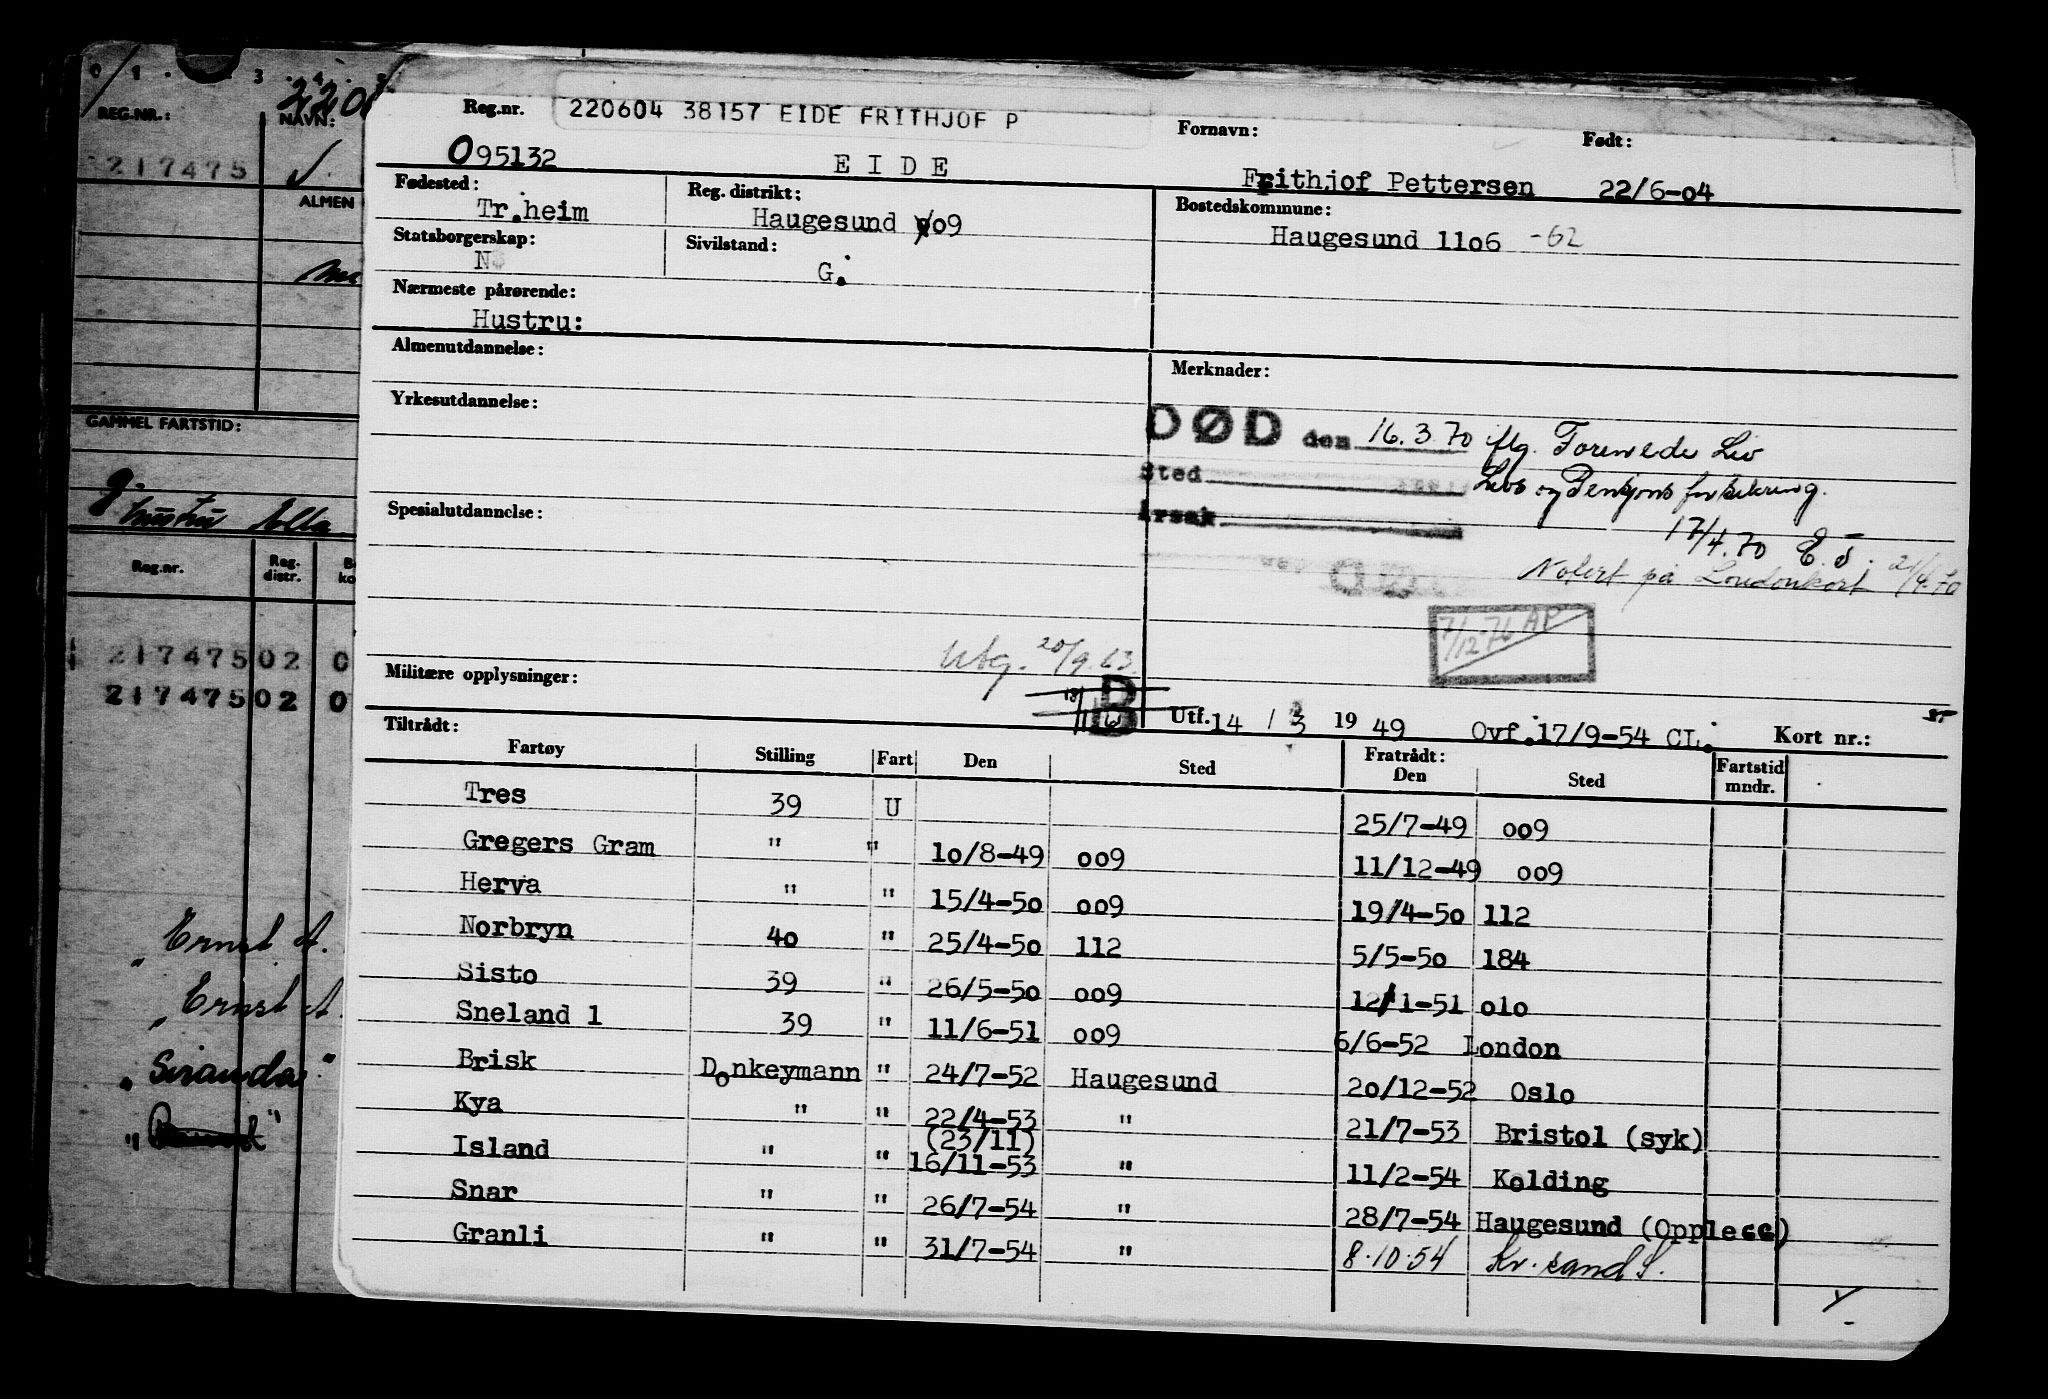 0 1 . . 3 . 4 . 5
REG.NR.:
NAVN:
217475
ALMEN
GAMMEL FARTSTID:
g.
hustru Ella
Reg.nr.
Reg. distr.
21747502 0
21747502 0
"Ernst A.
"Ernst A.
"Siranda"
Reg.nr. 220604 38157 EIDE FRITHJOF P
Fornavn:
Født:
095132
E I D E
Frithjof Pettersen 22/6-04
Fødested:
Tr.heim
Reg. distrikt:
Haugesund 009
Bostedskommune:
Haugesund 11o6 -62
Statsborgerskap:
N
Sivilstand:
G.
Nærmeste pårørende:
Hustru:
Almenutdannelse:
Merknader:
Yrkesutdannelse:
DØD den 16.3.70 iflg. Forenede Liv
Sted
Livs og Pensjons forsikring.
Årsak
17/4.70 E.J.
Spesialutdannelse:
Notert på Londonkort 21/4.70
7/12-76 AP
Utg. 20/9.63
Militære opplysninger:
B
Utf. 14 / 3 19 49 Ovf. 17/9-54 CL. Kort nr.:
Tiltrådt:
Fartøy Stilling Fart Den Sted Fratrådt: Den Sted Fartstid mndr.
Tres 39 U 25/7-49 oo9
Gregers Gram " " 10/8-49 oo9 11/12-49 oo9
Herva " " 15/4-5o oo9 19/4-5o 112
Norbryn 4o " 25/4-5o 112 5/5-5o 184
Sisto 39 " 26/5-5o oo9 12/1-51 o1o
Sneland 1 39 " 11/6-51 oo9 6/6-52 London
Brisk Donkeymann " 24/7-52 Haugesund 2o/12-52 Oslo
Kya " " 22/4-53 " 21/7-53 Bristol (syk)
(23/11)
Island " " 16/11-53 " 11/2-54 Kolding
Snar " " 26/7-54 " 28/7-54 Haugesund (Opplegg)
Granli " " 31/7-54 " 8.10.54 Kr.sand S.